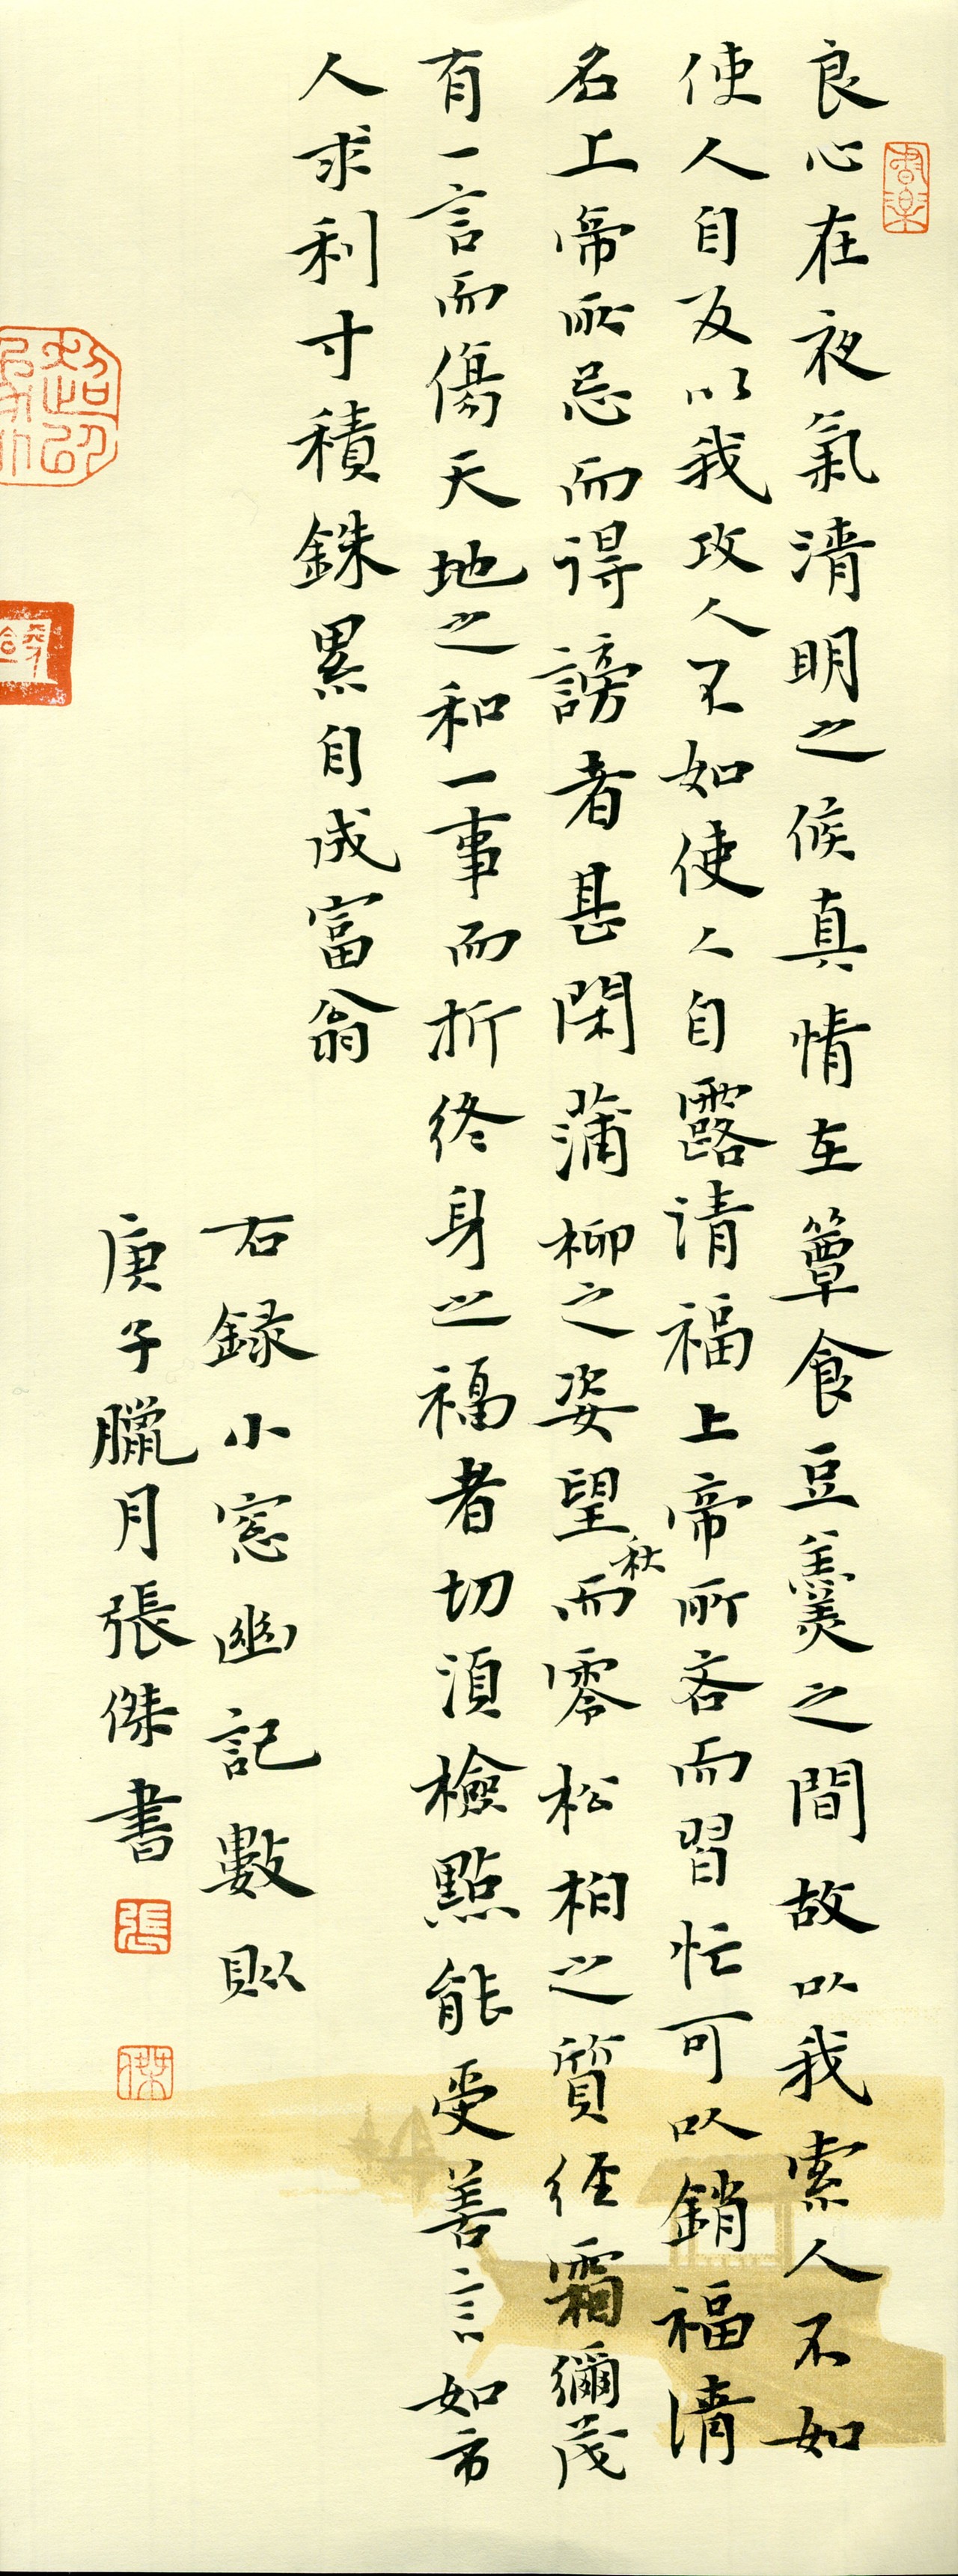 良心在夜氣清明之候真情在簞食豆羹之間故以我索人不如
使人自反以我攻人不如使人自露清福上帝所吝而習忙可以銷福清
名上帝所忌而得謗者甚閑蒲柳之姿望秋而零松柏之質經霜彌茂
有一言而傷天地之和一事而折終身之福者切須檢點能受善言如市
人求利寸積銖累自成富翁
右錄小窓幽記數則
庚子臘月張傑書
張
傑